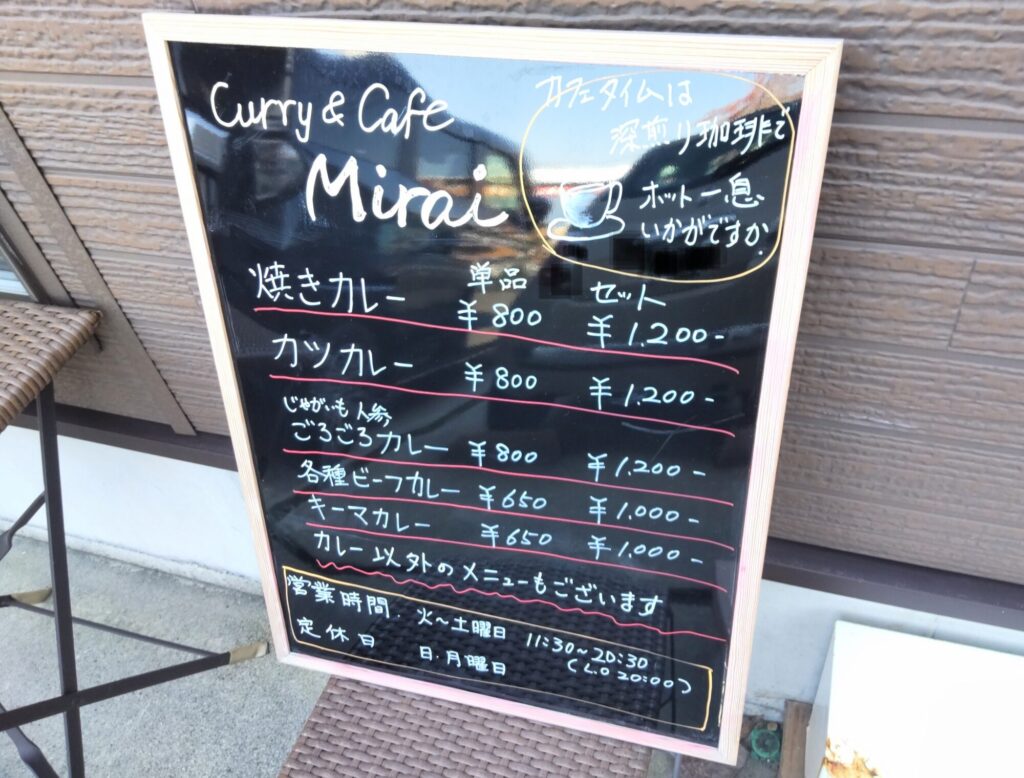 Curry & Cafe
Mirai
カフェタイムは
深煎り珈琲で
ホット一息
いかがですか.
単品 セット
焼きカレー ¥800 ¥1.200-
カツカレー ¥800 ¥1.200-
じゃがいも人参
ごろごろカレー ¥800 ¥1.200-
各種ビーフカレー ¥650 ¥1.000-
キーマカレー ¥650 ¥1.000-
カレー以外のメニューもございます
営業時間. 火~土曜日 11:30~20:30
(L.O 20:00)
定休日 日.月曜日